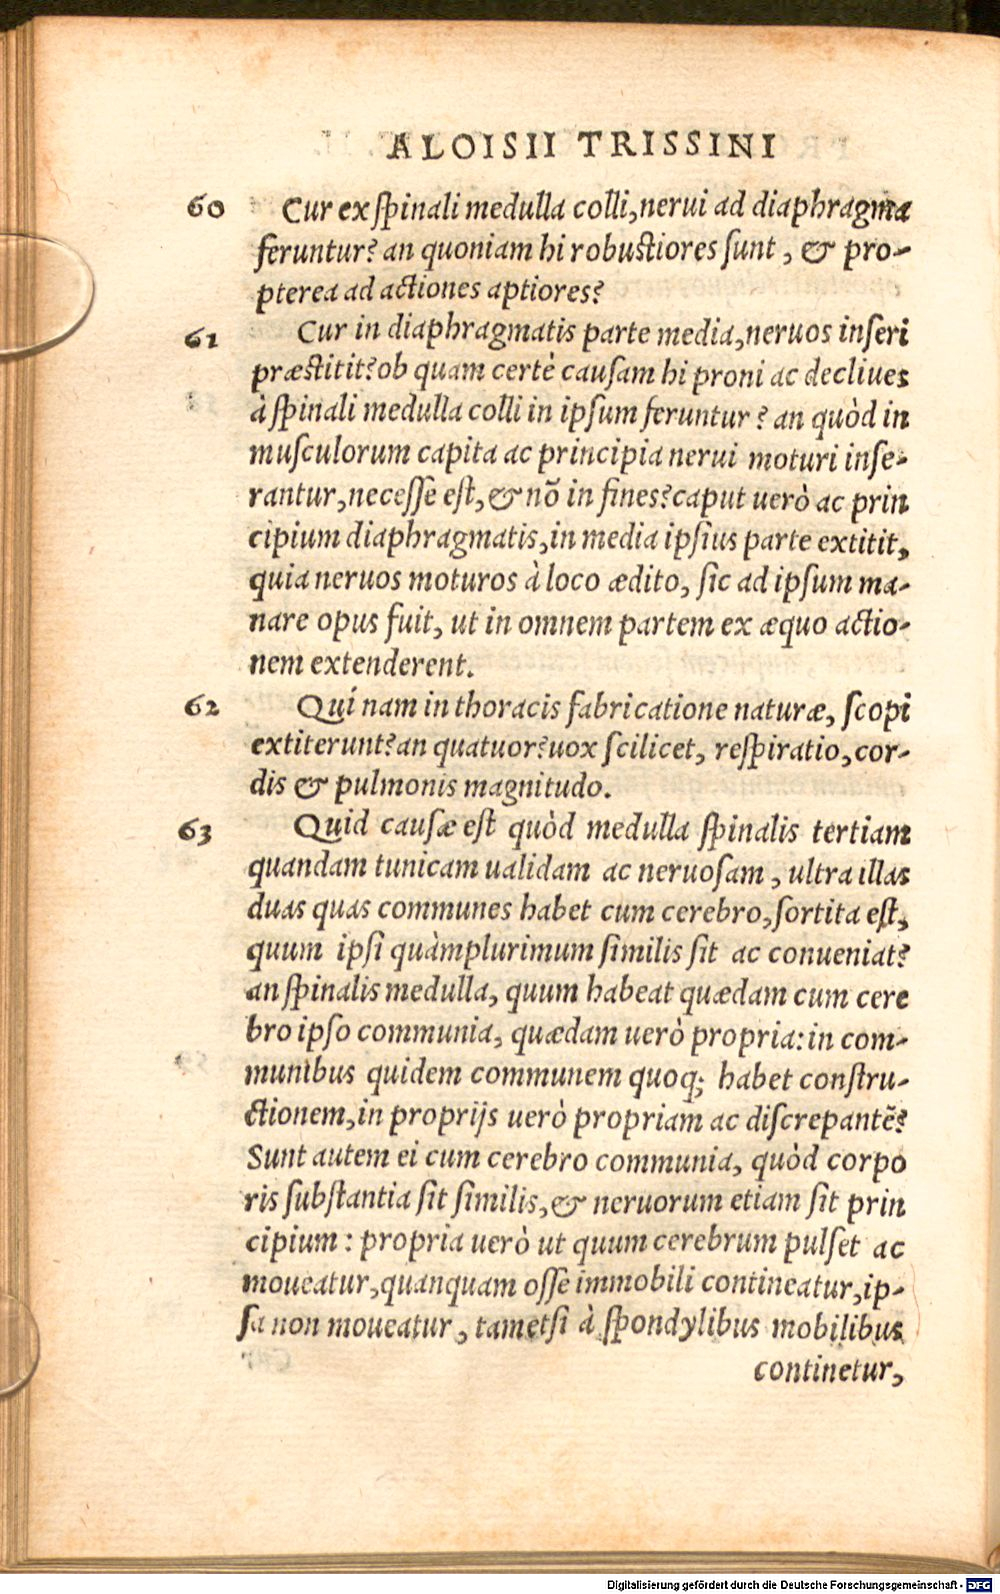 ALOISII TRISSINI
60 Cur ex spinali medulla colli, nerui ad diaphragma
feruntur? an quoniam hi robustiores sunt, & pro-
pterea ad actiones aptiores?
61 Cur in diaphragmatis parte media, neruos inseri
præstitit? ob quam certè causam hi proni ac decliues
à spinali medulla colli in ipsum feruntur? an quòd in
musculorum capita ac principia nerui moturi inse-
rantur, necesse est, & nō in fines? caput uerò ac prin
cipium diaphragmatis, in media ipsius parte extitit,
quia neruos moturos à loco ædito, sic ad ipsum ma-
nare opus fuit, ut in omnem partem ex æquo actio-
nem extenderent.
62 Quí nam in thoracis fabricatione naturæ, scopi
extiterunt? an quatuor? uox scilicet, respiratio, cor-
dis & pulmonis magnitudo.
63 Quid causæ est quòd medulla spinalis tertiam
quandam tunicam ualidam ac neruosam, ultra illas
duas quas communes habet cum cerebro, sortita est,
quum ipsi quàmplurimum similis sit ac conueniat?
an spinalis medulla, quum habeat quædam cum cere
bro ipso communia, quædam uerò propria: in com-
munibus quidem communem quoq; habet constru-
ctionem, in proprijs uerò propriam ac discrepantē?
Sunt autem ei cum cerebro communia, quòd corpo
ris substantia sit similis, & neruorum etiam sit prin
cipium: propria uerò ut quum cerebrum pulset ac
moueatur, quanquam osse immobili contineatur, ip-
sa non moueatur, tametsi à spondylibus mobilibus
continetur,
Digitalisierung gefördert durch die Deutsche Forschungsgemeinschaft - DFG